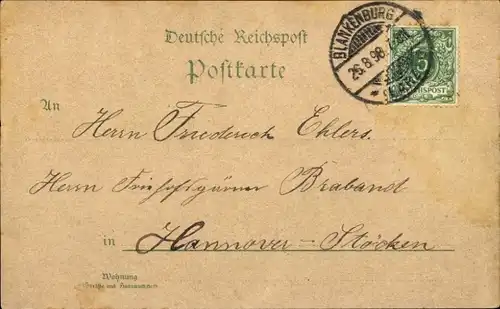 Deutsche Reichspost
Postkarte
BLANKENBURG
26.8.98
(HARZ)
5
REICHSPOST
An
Herrn Friederich Ehlers.
Herrn Friehofsgärtner Braband
in Hannover-Stöcken
Wohnung
(Straße und Hausnummer)